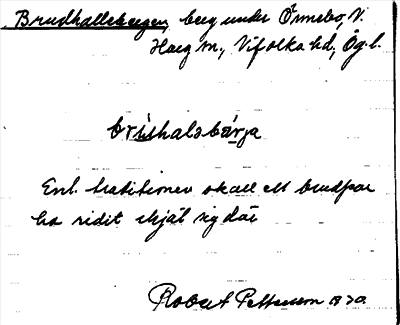 Brudhallebergen, berg under Örnebo, V.
Harg sn., Vifolka hd, Ög. l.
brúthalsbärja
Enl. traditionen skall ett brudpar
ha ridit ihjäl sig där
Robert Pettersson 1930